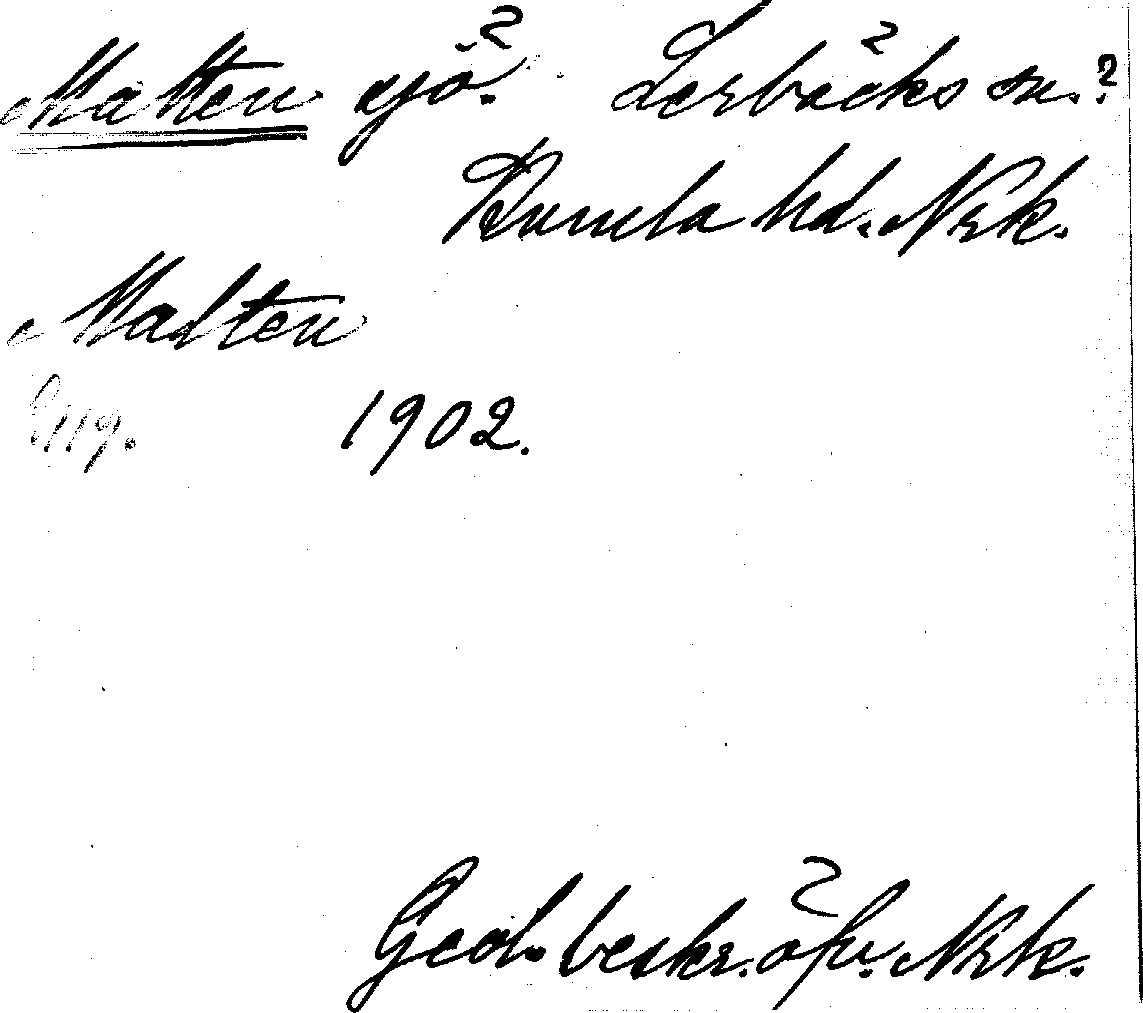 Malten sjö. Lerbäcks sn.?
Kumla hd. Nrk.
Malten
119. 1902.
Geol. beskr. öfv. Nrk.